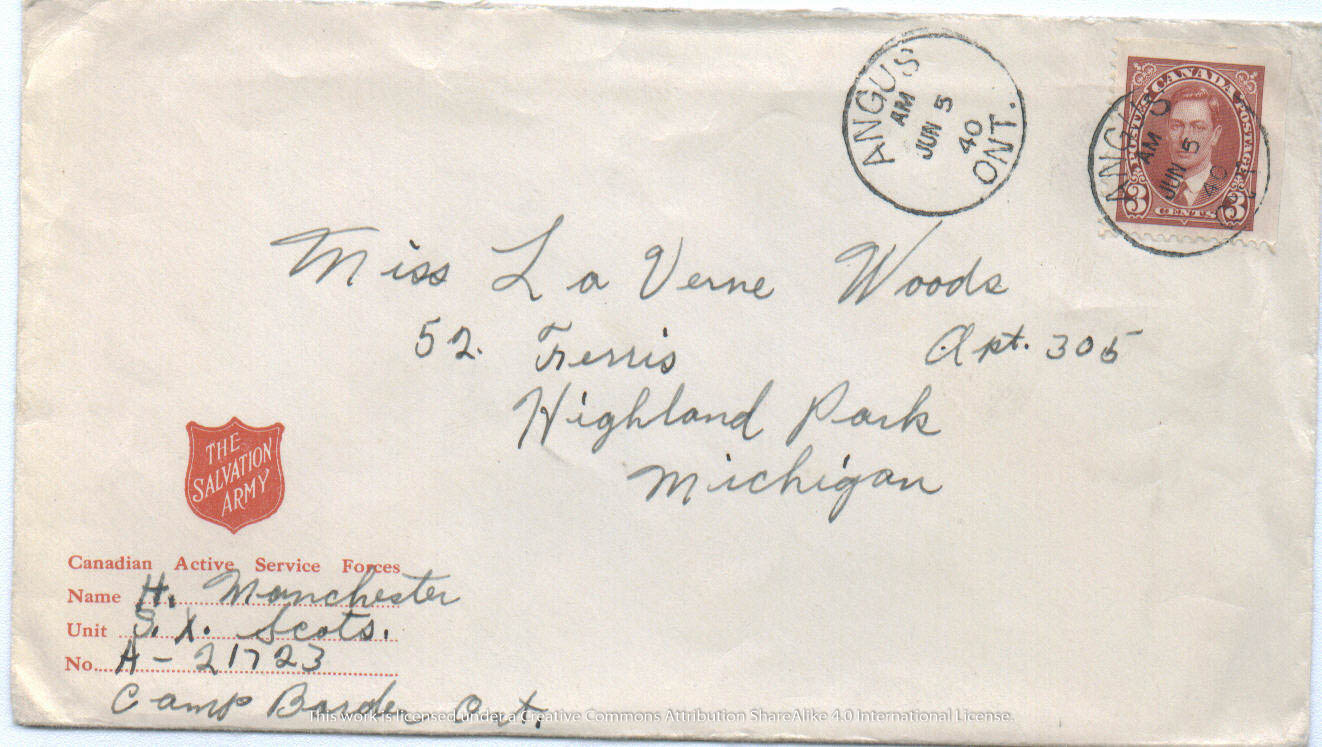 ANGUS
AM
JUN 5
40
ONT.
CANADA
POSTES POSTAGE
3 CENTS 3
ANGUS
AM
JUN 5
40
Miss La Verne Woods
52. Ferris Apt. 305
Highland Park
Michigan
THE
SALVATION
ARMY
Canadian Active Service Forces
Name H. Manchester
Unit S. X. Scots.
No. A-21723
Camp Borden Ont.
This work is licensed under a Creative Commons Attribution ShareAlike 4.0 International License.